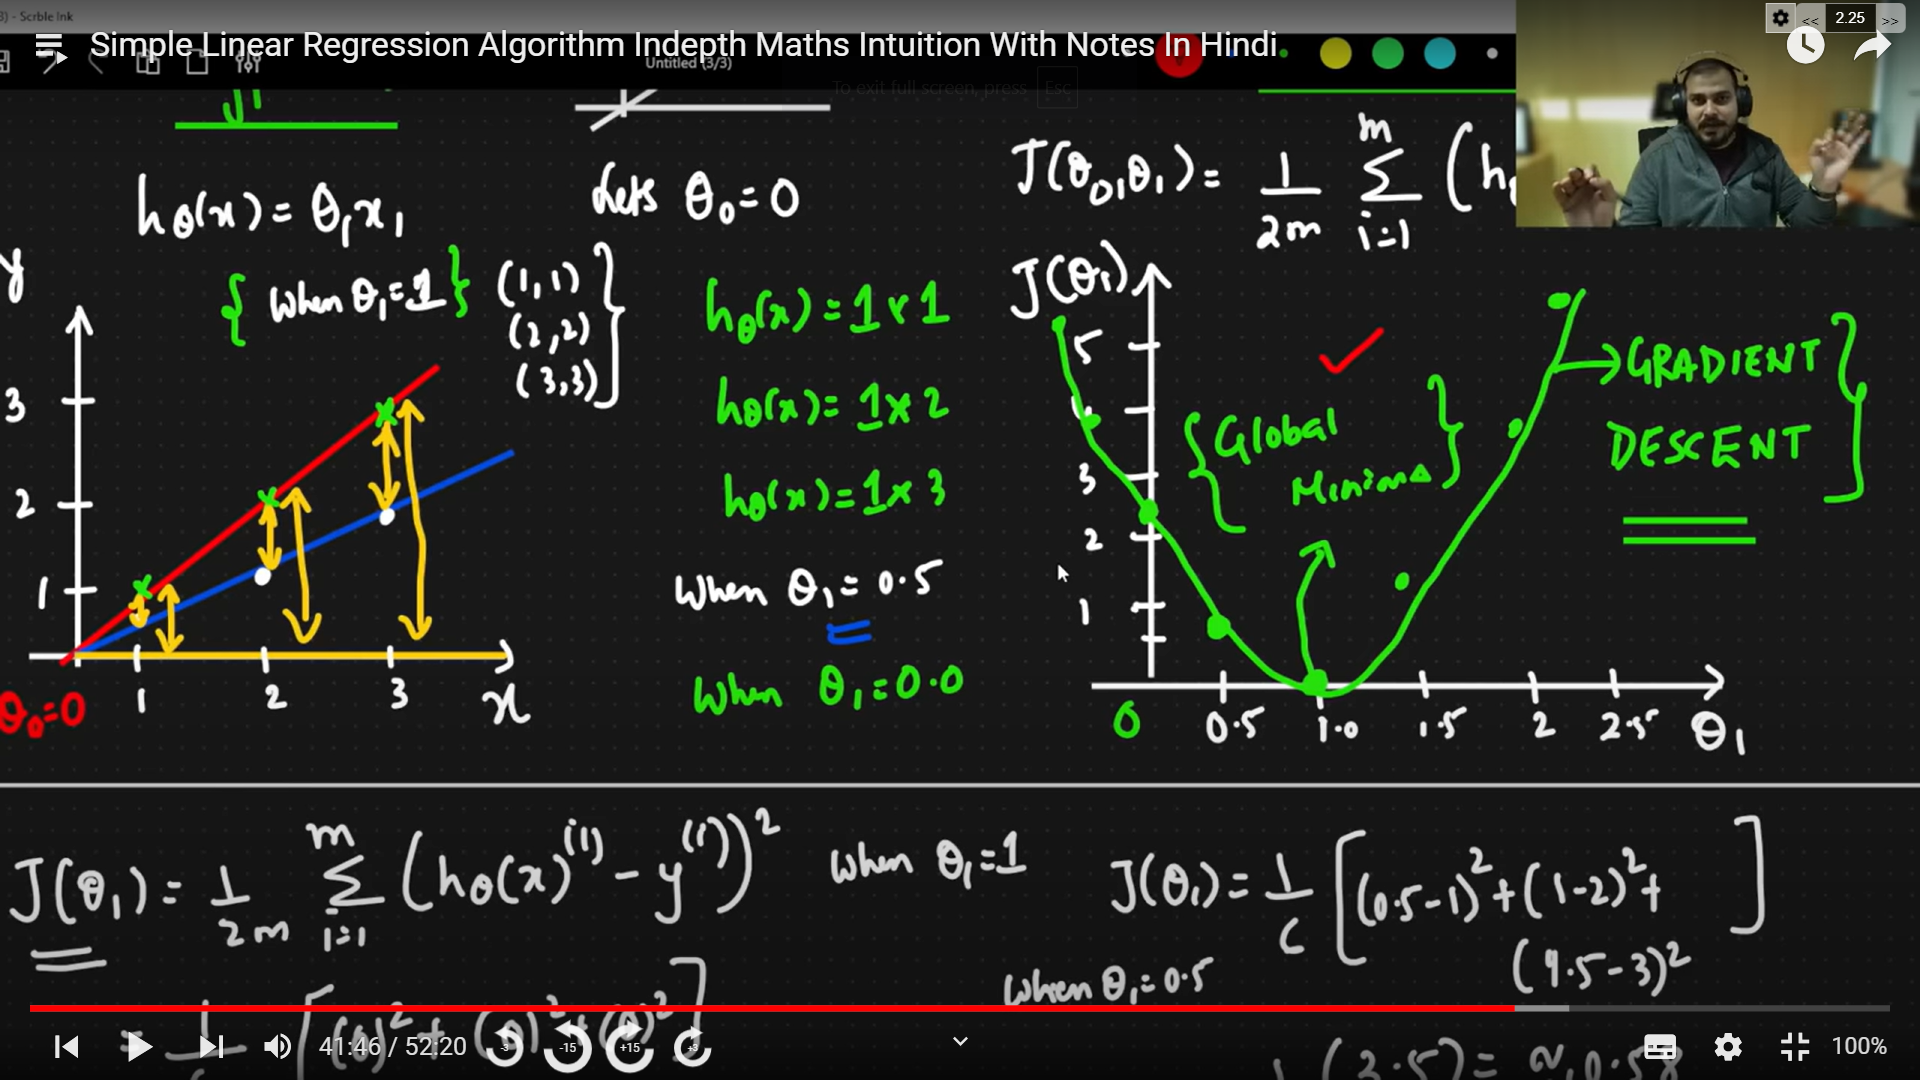 3) - Scrble Ink
<< 2.25 >>
Simple Linear Regression Algorithm Indepth Maths Intuition With Notes In Hindi
Untitled (3/3)
To exit full screen, press Esc
hθ(x) = θ₁x₁
Lets θ₀ = 0
J(θ₀,θ₁) = 1/2m Σ i=1 m (h
y
{ When θ₁=1 }
(1,1)
(2,2)
(3,3) }
3
2
1
1 2 3 x
θ₀=0
hθ(x) = 1 x 1
hθ(x) = 1 x 2
hθ(x) = 1 x 3
When θ₁ = 0.5
When θ₁ = 0.0
J(θ₁)
5
4
3
2
1
0 0.5 1.0 1.5 2 2.5 θ₁
{ Global Minima }
→ GRADIENT
DESCENT }
J(θ₁) = 1/2m Σ i=1 m (hθ(x)⁽ⁱ⁾ - y⁽ⁱ⁾)²
When θ₁=1
J(θ₁) = 1/6 [(0.5-1)² + (1-2)² +
(1.5-3)²]
When θ₁=0.5
41:46 / 52:20
-3 -15 +15 +3
100%